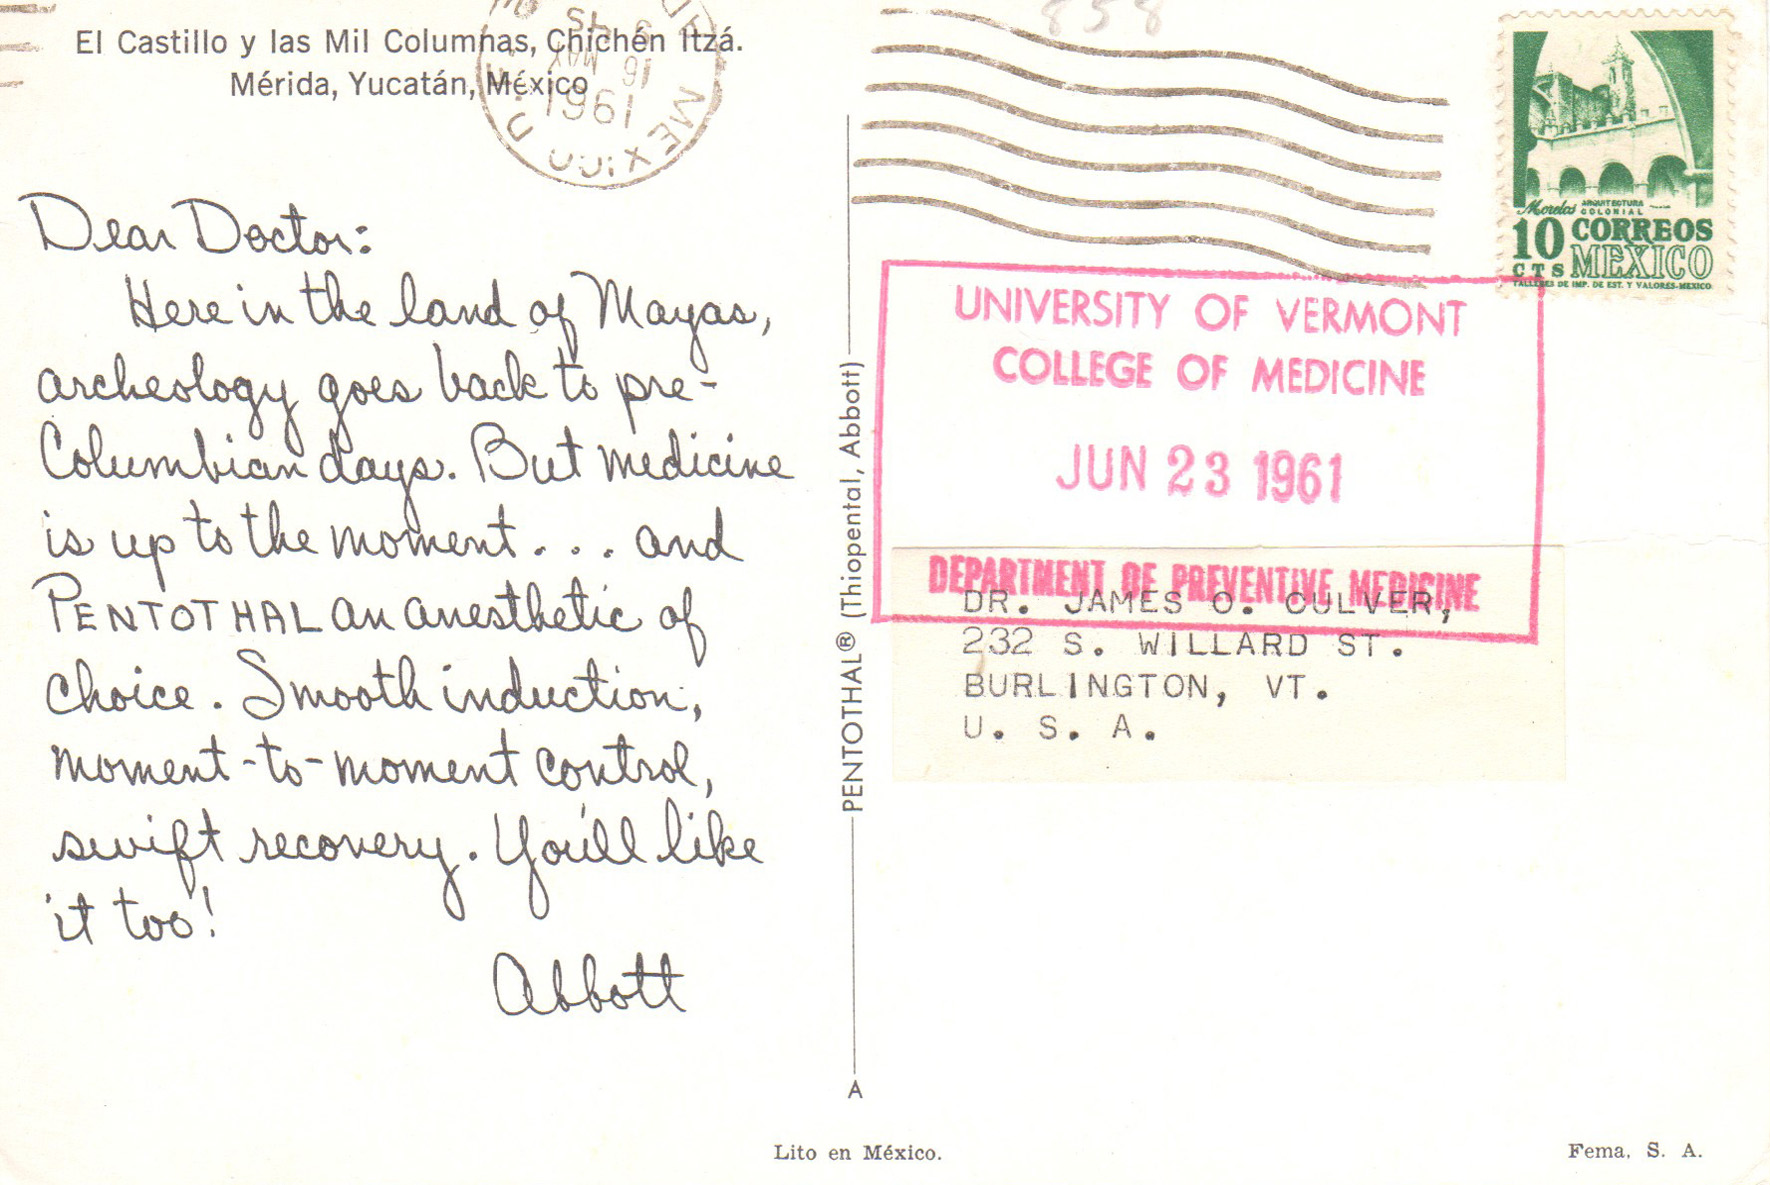 El Castillo y las Mil Columnas, Chichén Itzá.
Mérida, Yucatán, México
16 MAY
1961
MEXICO D.
Dear Doctor:
Here in the land of Mayas,
archeology goes back to pre-
Columbian days. But medicine
is up to the moment... and
PENTOTHAL an anesthetic of
choice. Smooth induction,
moment-to-moment control,
swift recovery. You'll like
it too!
Abbott
PENTOTHAL® (Thiopental, Abbott)
A
858
Morelos ARQUITECTURA
COLONIAL
10 CORREOS
CTS MEXICO
TALLERES DE IMP. DE EST. Y VALORES-MEXICO
UNIVERSITY OF VERMONT
COLLEGE OF MEDICINE
JUN 23 1961
DEPARTMENT OF PREVENTIVE MEDICINE
DR. JAMES O. CULVER,
232 S. WILLARD ST.
BURLINGTON, VT.
U. S. A.
Lito en México.
Fema, S. A.